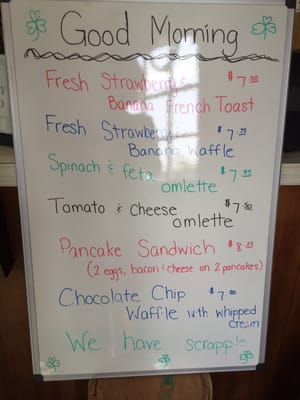 Good Morning
Fresh Strawberry & $7.50
Banana French Toast
Fresh Strawberry & $7.75
Banana Waffle
Spinach & feta $7.95
omlette
Tomato & cheese $7.50
omlette
Pancake Sandwich $8.25
(2 eggs, bacon & cheese on 2 pancakes)
Chocolate Chip $7.00
Waffle with whipped
cream
We have scrapple